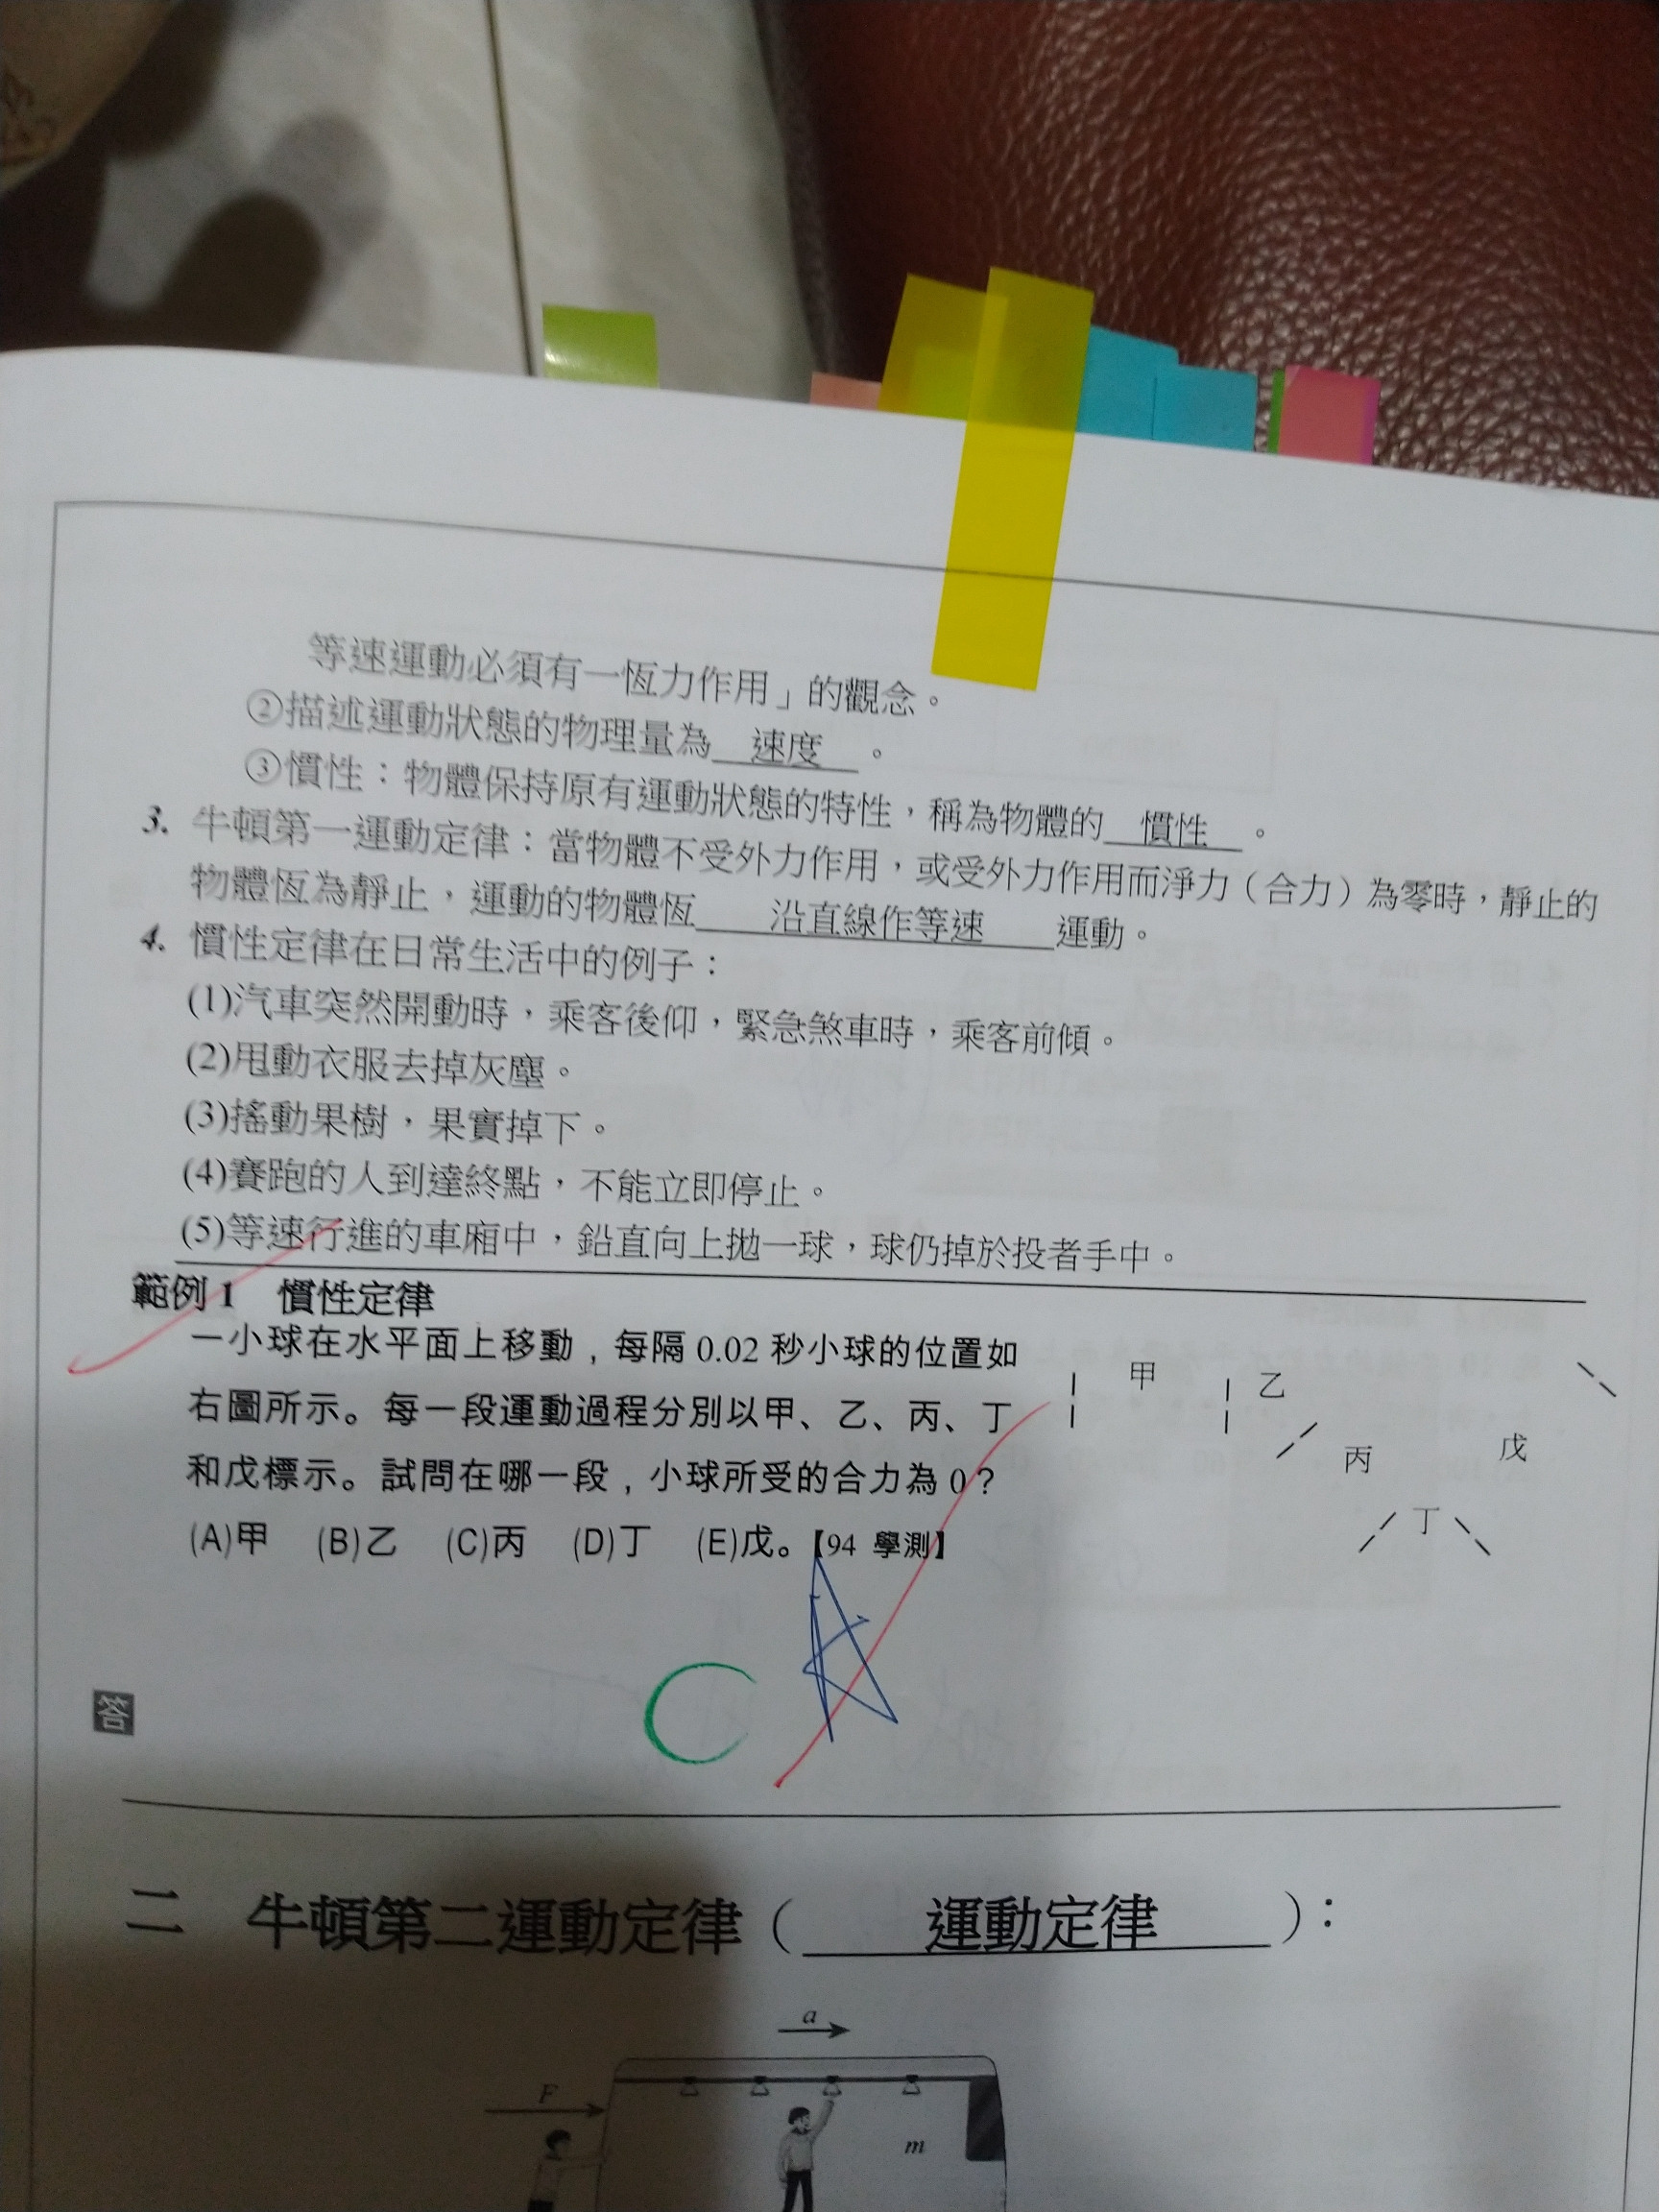 等速運動必須有一恆力作用」的觀念。
②描述運動狀態的物理量為 速度 。
③慣性：物體保持原有運動狀態的特性，稱為物體的 慣性 。
3. 牛頓第一運動定律：當物體不受外力作用，或受外力作用而淨力（合力）為零時，靜止的
物體恆為靜止，運動的物體恆 沿直線作等速 運動。
4. 慣性定律在日常生活中的例子：
(1)汽車突然開動時，乘客後仰，緊急煞車時，乘客前傾。
(2)甩動衣服去掉灰塵。
(3)搖動果樹，果實掉下。
(4)賽跑的人到達終點，不能立即停止。
(5)等速行進的車廂中，鉛直向上拋一球，球仍掉於投者手中。
範例1 慣性定律
一小球在水平面上移動，每隔 0.02 秒小球的位置如
右圖所示。每一段運動過程分別以甲、乙、丙、丁
和戊標示。試問在哪一段，小球所受的合力為 0？
(A)甲 (B)乙 (C)丙 (D)丁 (E)戊。【94 學測】
甲
乙
丙
丁
戊
C
答
二 牛頓第二運動定律（ 運動定律 ）：
a
F
m